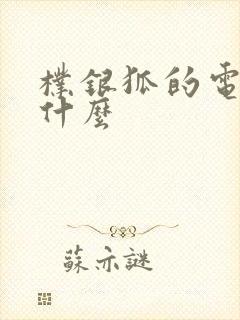 檏銀狐的電
什麼
蘇亦謎